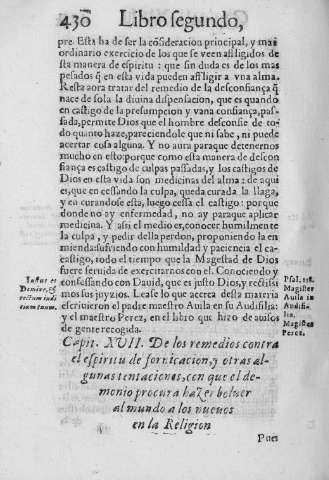 430 Libro segundo,
pre. Esta ha de ser la cõsideracion principal, y mas
ordinario exercicio de los que se veen afligidos de
sta manera de espiritu: que sin duda es de los mas
pesados q̃ en esta vida pueden affligir a vna alma.
Resta aora tratar del remedio de la desconfiança q̃
nace de sola la diuina dispensacion, que es quando
en castigo de la presumpcion y vana confiança, pas-
sada, permite Dios que el hombre desconfie de to-
do quanto haze, pareciendole que ni sabe, ni puede
acertar cosa alguna. Y no aura paraque detenernos
mucho en esto: porque como esta manera de descon
fiança es castigo de culpas passadas, y los castigos de
Dios en esta vida son medicinas del alma: de aqui
es, que en cessando la culpa, queda curada la llaga,
y en curandose esta, luego cessa el castigo: porque
donde no ay enfermedad, no ay paraque aplicar
medicina. Y assi el medio es, conocer humilmente
la culpa, y pedir della perdon, proponiendo la en
mienda sufriendo con humildad y paciencia el ca-
castigo, todo el tiempo que la Magestad de Dios
fuere seruida de exercitarnos con el. Conociendo y
confessando con Dauid, que es justo Dios, y rectissi
mos sus juyzios. Lease lo que acerca desta materia
escriuieron el padre maestro Auila en su Audifilia:
y el maestro Perez, en el libro que hizo de auisos
de gente recogida.
Iustus es
Domine, &
rectum iudi
cium tuum.
Psal. 118.
Magister
Auila in
Audifi-
lia.
Magister
Perez.
Capit. XVII. De los remedios contra
el espiritu de fornicacion, y otras al-
gunas tentaciones, con que el de-
monio procura hazer boluer
al mundo a los nueuos
en la Religion
Pues